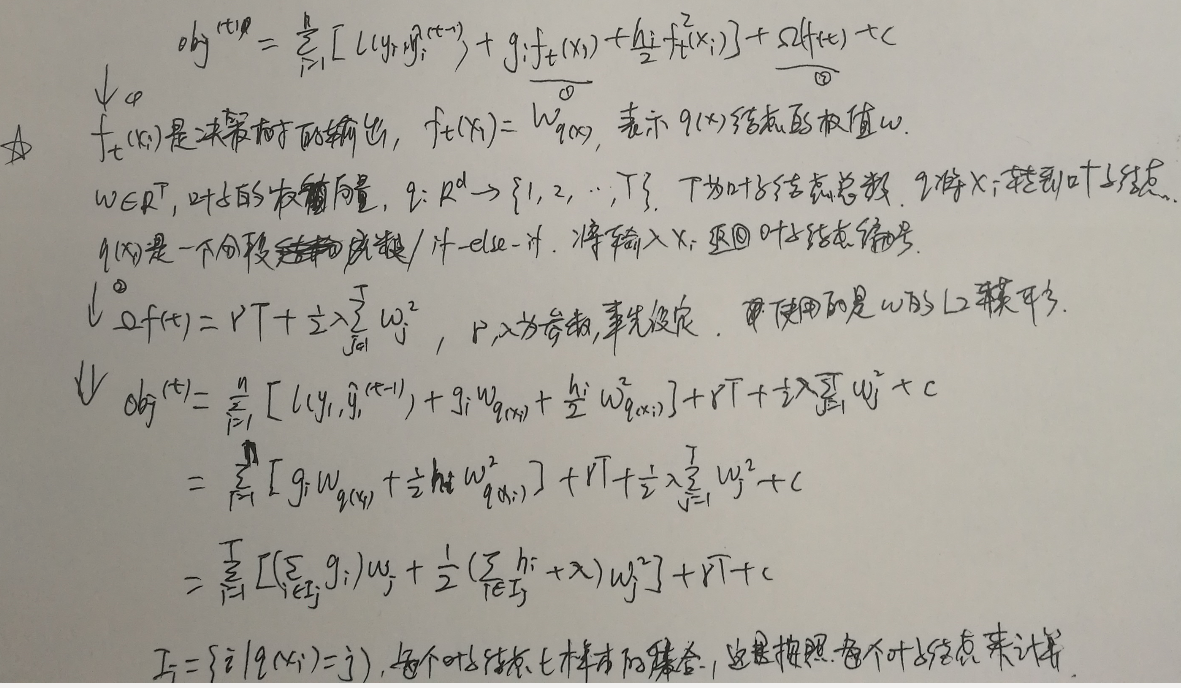 obj^(t) = Σ_{i=1}^{n} [ l(y_i, ŷ_i^(t-1)) + g_i f_t(x_i) + h_i/2 f_t²(x_i) ] + Ωf(t) + c
① ②
↓ ① f_t(x_i)是决策树的输出, f_t(x_i) = W_q(x), 表示 q(x)结点的权值w.
☆
w∈R^T, 叶子的权值向量, q: R^d → {1, 2, …, T}. T为叶子结点总数. q将x_i转到叶子结点.
q(x_i)是一个分段函数 / if-else-if. 将输入x_i 返回叶子结点编号.
↓ ② Ωf(t) = γT + ½λ Σ_{j=1}^{T} w_j² , γ,λ为参数,事先设定. 使用的是w的L2模平方.
⇓ obj^(t) = Σ_{i=1}^{n} [ l(y_i, ŷ_i^(t-1)) + g_i w_q(x_i) + h_i/2 w²_q(x_i) ] + γT + ½λ Σ_{j=1}^{T} w_j² + c
= Σ_{i=1}^{n} [ g_i w_q(x_i) + ½ h_i w²_q(x_i) ] + γT + ½λ Σ_{j=1}^{T} w_j² + c
= Σ_{i=1}^{T} [ (Σ_{i∈I_j} g_i) w_j + ½ (Σ_{i∈I_j} h_i + λ) w_j² ] + γT + c
I_j = {i | q(x_i) = j}, 每个叶子结点上样本的集合, 这是按照每个叶子结点来计算.